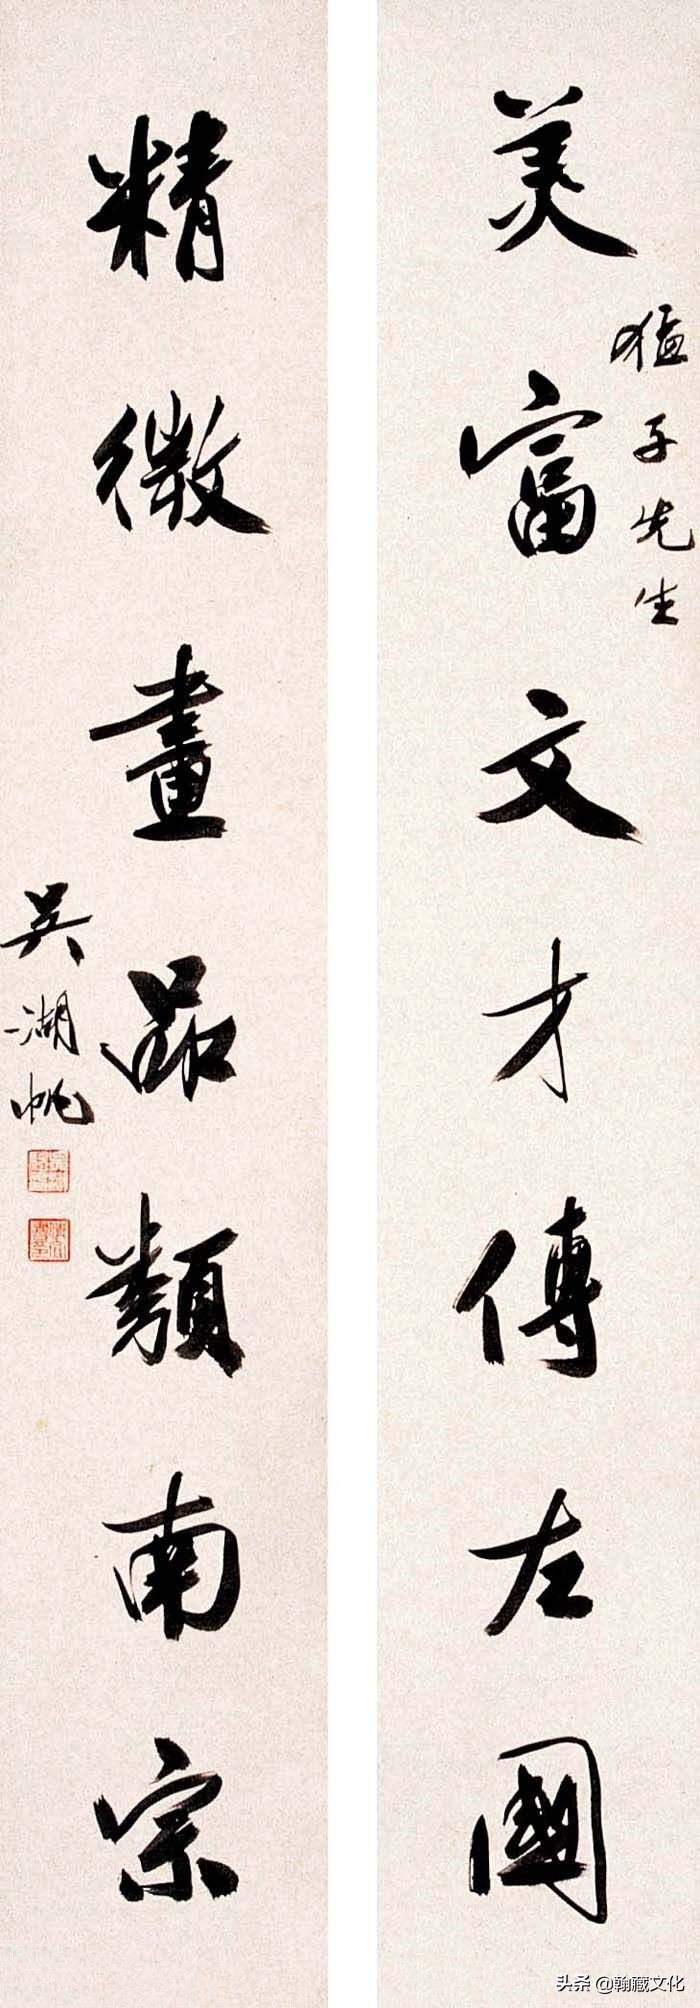 美富文才傳左國
猛子先生
精微畫品類南宗
吳湖帆
头条 @翰藏文化